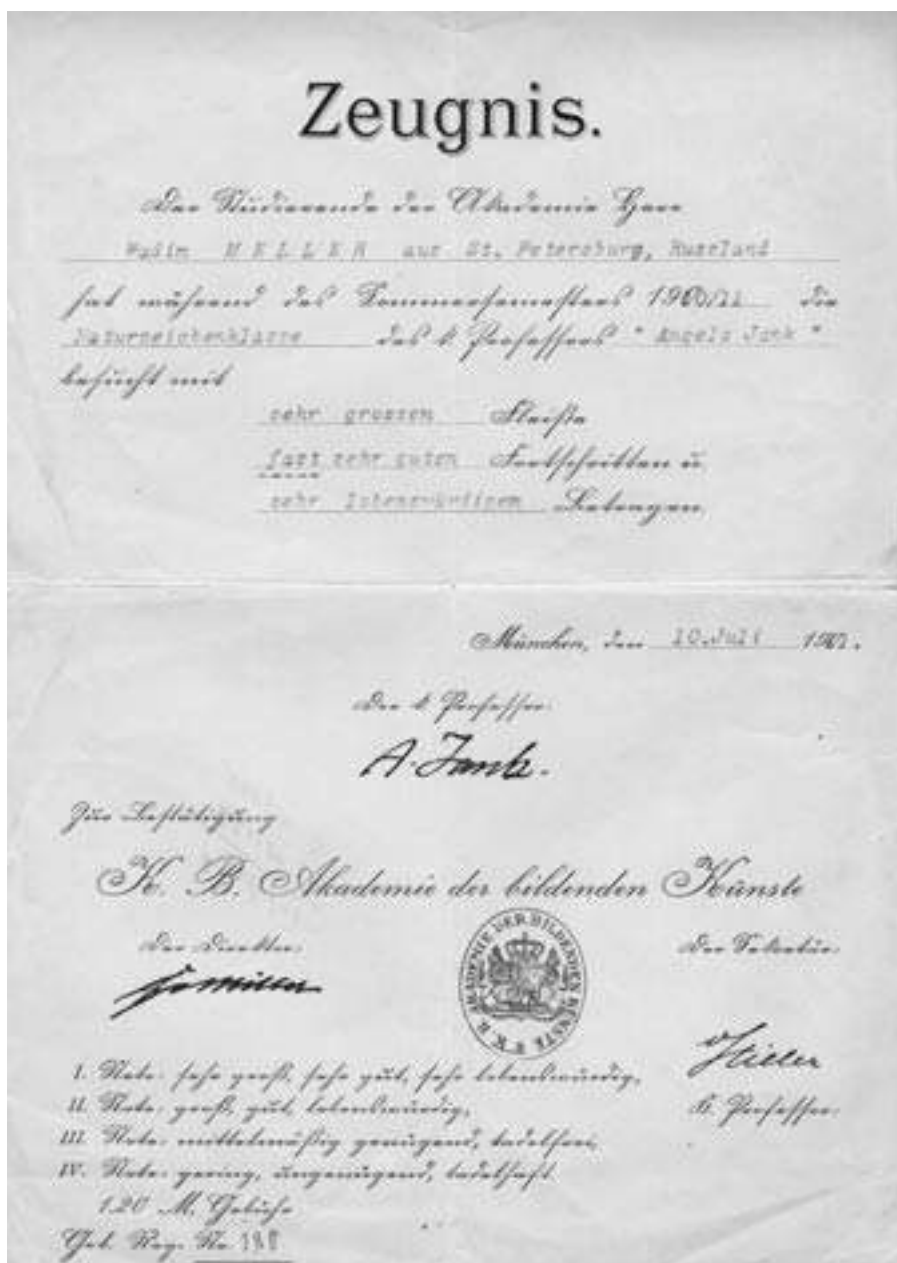 Zeugnis.
Der Studierende der Akademie Herr
Wadim MELLER aus St. Petersburg, Russland
hat während des Sommersemesters 19 die
Naturzeichenklasse des k Professors "Angelo Jank"
besucht mit
sehr grossen Fleiße
fast sehr guten Fortschritten u.
sehr lobenswürdigem Betragen.
München, den 10.Juli 19
Der k Professor:
A. Jank.
Zur Bestätigung
K. B. Akademie der bildenden Künste
Der Direktor:
Der Sekretär:
K. B. AKADEMIE DER BILDENDEN KÜNSTE
K. Professor.
I. Note: sehr groß, sehr gut, sehr lobenswürdig,
II. Note: groß, gut, lobenswürdig,
III. Note: mittelmäßig genügend, tadelfrei,
IV. Note: gering, ungenügend, tadelhaft
1.20 M. Gebühr
Geb. Reg. No